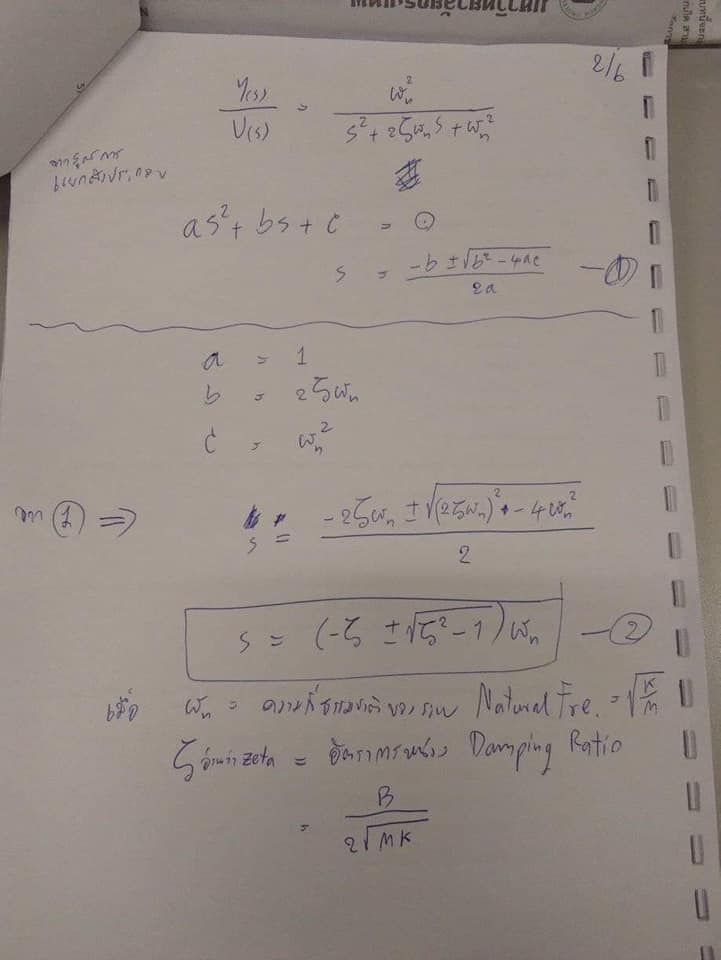 2/6
Y(s)/U(s) = ωn²/(s² + 2ζωn s + ωn²)
จากสูตรการ
แยกตัวประกอบ
as² + bs + c = 0
s = (-b ± √(b² - 4ac))/2a — ①
a = 1
b = 2ζωn
c = ωn²
จาก ① ⇒ s = (-2ζωn ± √((2ζωn)² - 4ωn²))/2
s = (-ζ ± √(ζ² - 1)) ωn — ②
เมื่อ ωn = ความถี่ธรรมชาติของระบบ Natural Fre. = √(K/M)
ζ อ่านว่า zeta = อัตราการหน่วง Damping Ratio
= B/(2√(MK))